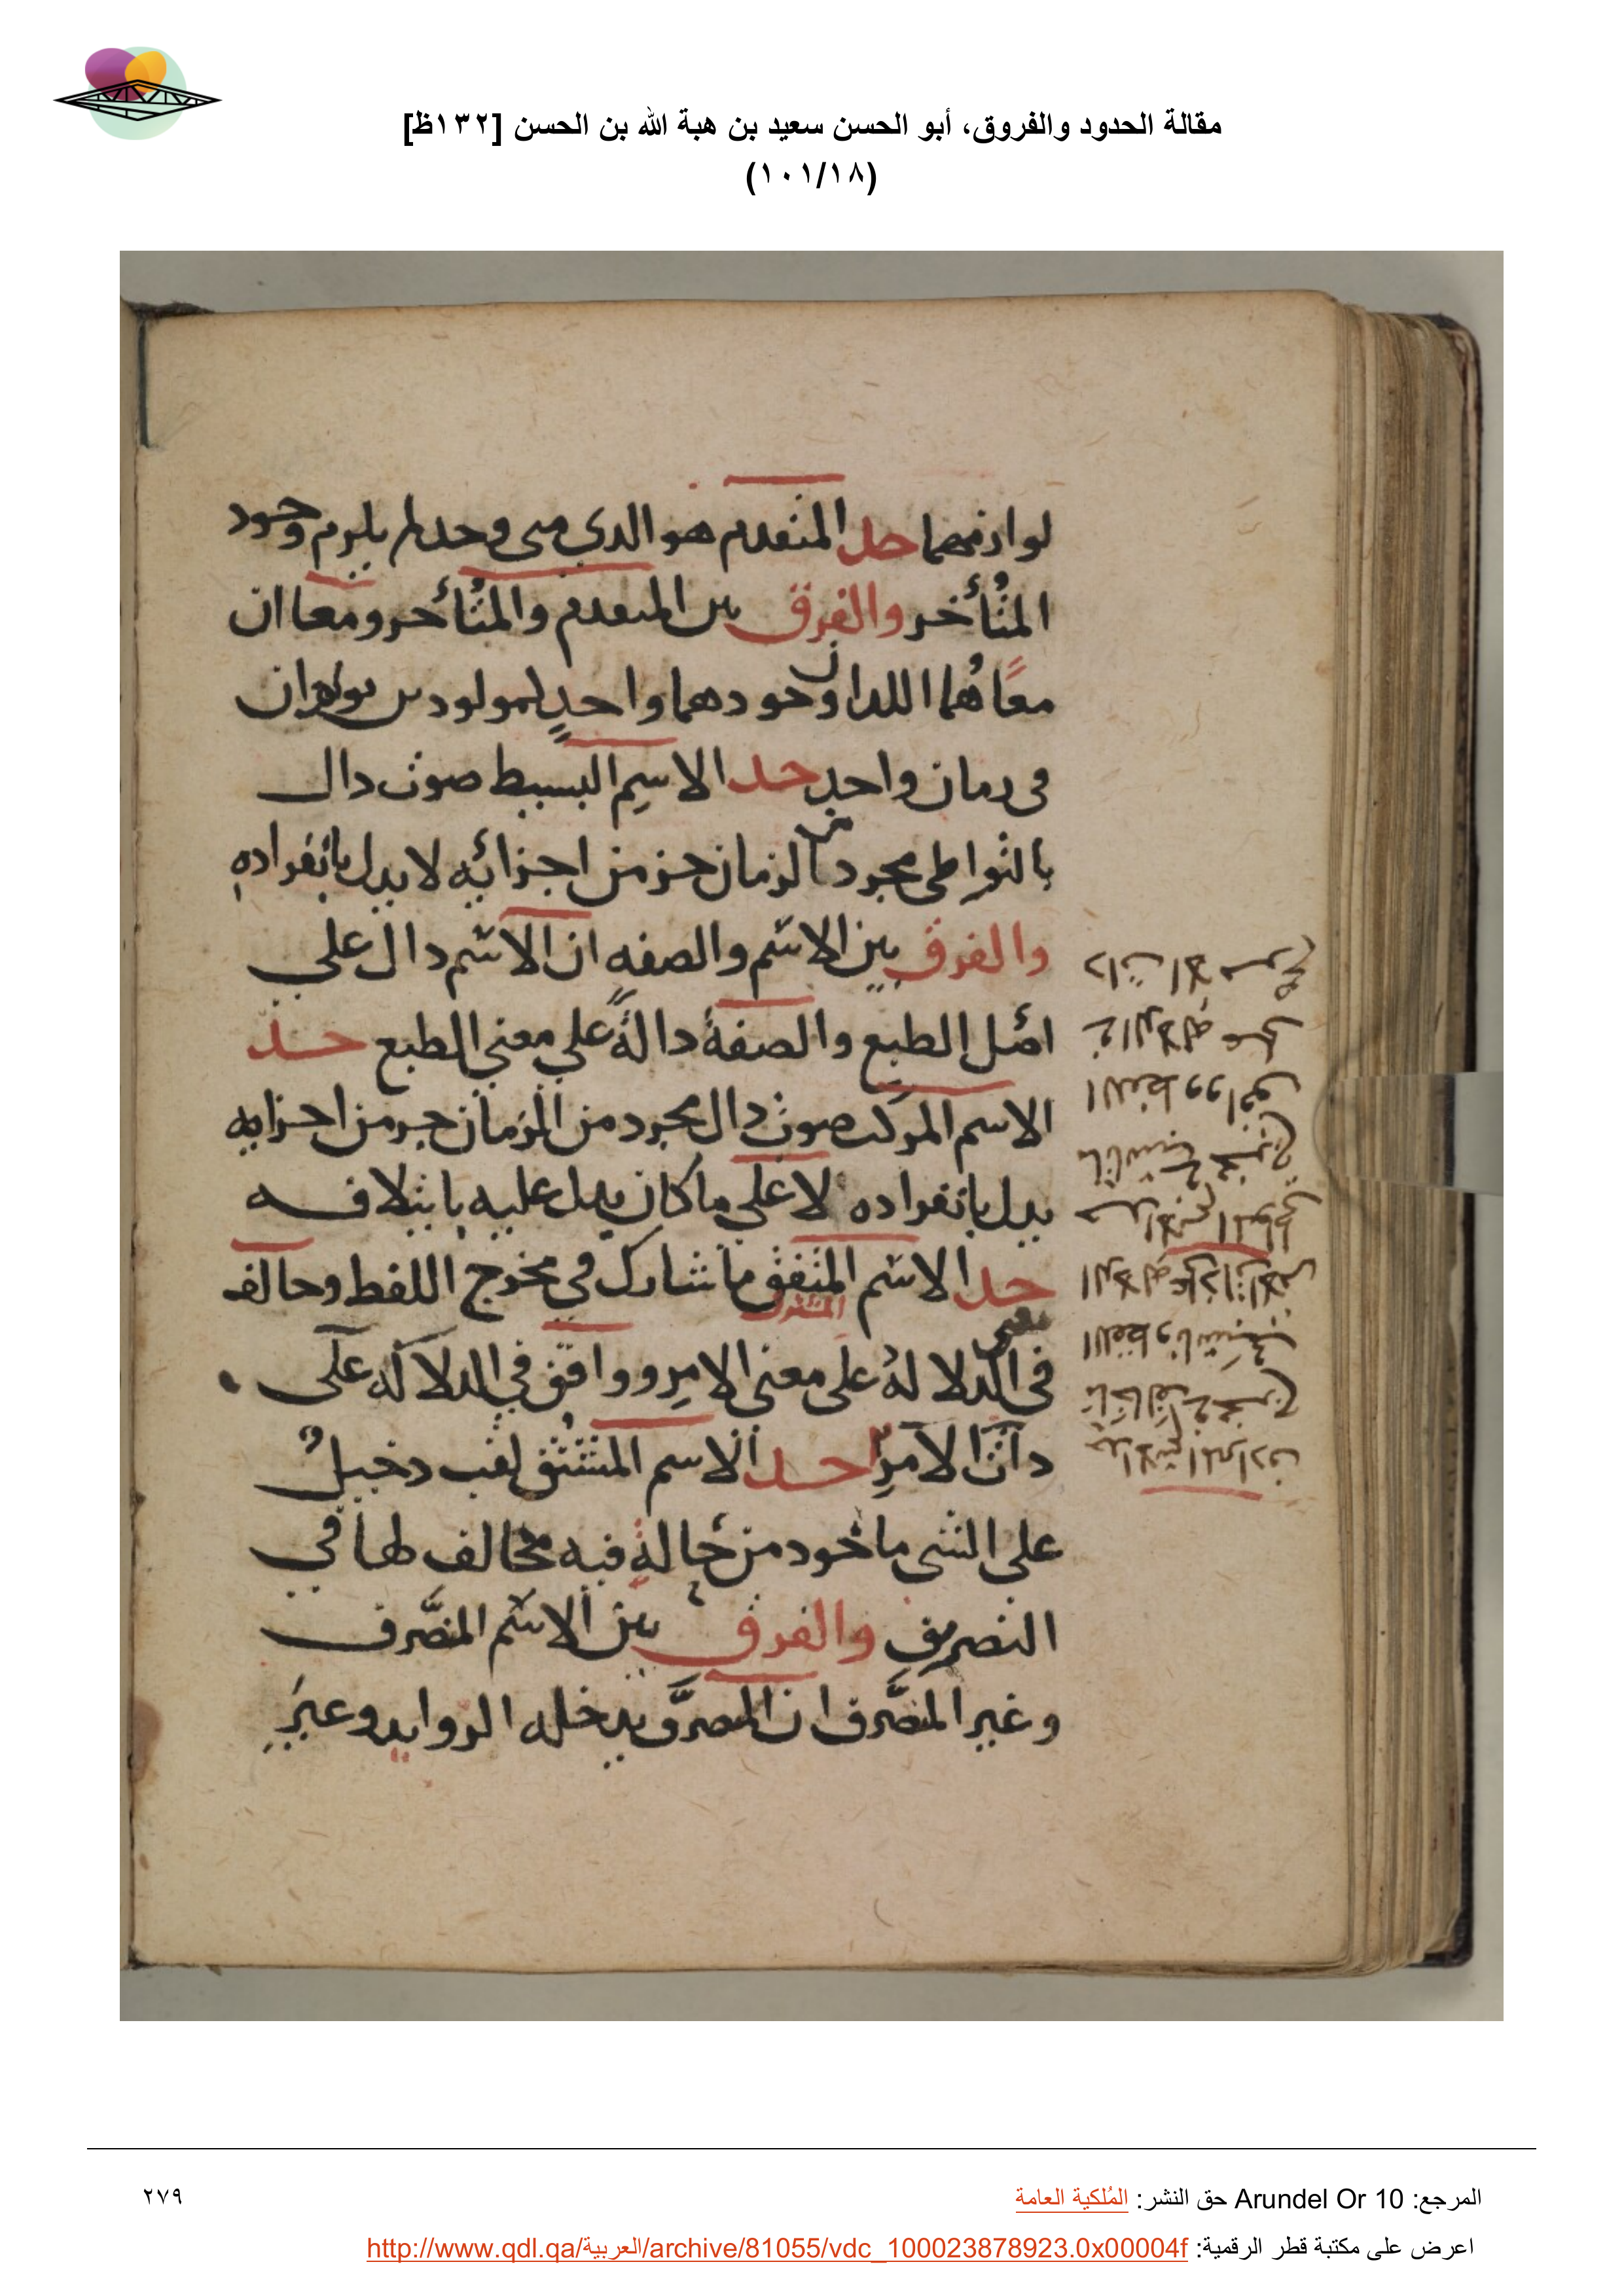 مقالة الحدود والفروق، أبو الحسن سعيد بن هبة الله بن الحسن [١٣٢ظ]
(١٠١/١٨)
لوازمهما حد المتقدم هو الدي متى وجد لم يلزم وجود
المتأخر والفرق بين المتقدم والمتأخر ومعا ان
معًا هُما اللدان وجودهما واحدٍ لمولودين يولدان
في زمان واحدٍ حد الاسم البسيط صوت دال
بالتواطي مجرد من الزمان جز من اجزائه لا يدل بانفراده
والفرق بين الاسم والصفه ان الاسم دال على
اصل الطبع والصفة دالةً على معنى الطبع حد
الاسم المركب صوت دال مجرد من الزمان جز من اجزايه
يدل بانفراده لا على ما كان يدل عليه بايتلافه
حد الاسم المتفق ما شارك في مخرج اللفظ وخالف
المشترك
معنى
في الدلالة على معنى الامر ووافق في الدلاله على
دات الامر حد الاسم المشتق لقب دخيل
على الشى ماخود من حالةٍ فيه مخالف لها في
التصريف والفرق بين الاسم المتصَّرف
وغير المتصَّرف ان المتصرَّف يدخله الزوايد وغير
المرجع: Arundel Or 10 حق النشر: المُلكية العامة
٢٧٩
اعرض على مكتبة قطر الرقمية: http://www.qdl.qa/العربية/archive/81055/vdc_100023878923.0x00004f